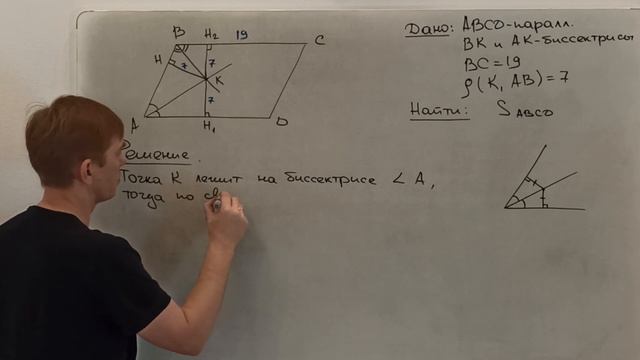 B H₂ 19 C
H 7 7 K
7
A H₁ D
Дано: ABCD-паралл.
BK и AK-биссектрисы
BC = 19
ρ(K, AB) = 7
Найти: S ABCD
Решение.
Точка K лежит на биссектрисе ∠A,
тогда по св